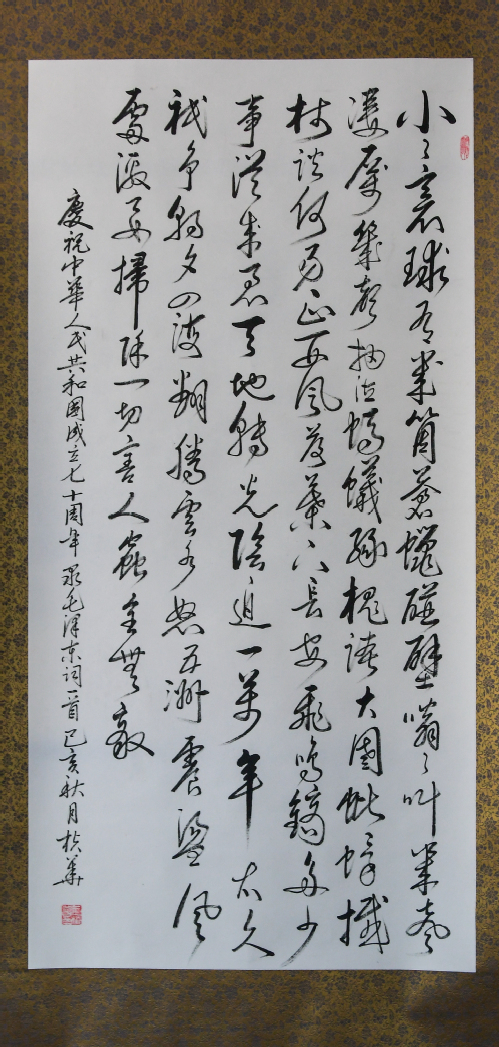 小〻寰球有幾箇蒼蠅碰壁嗡〻叫幾聲
凄厉幾聲抽泣螞蟻緣槐誇大國蚍蜉撼
树談何易正西風落葉下長安飛鳴鏑多少
事從來急天地轉光陰迫一萬年太久
祇争朝夕四海翻騰雲水怒五洲震盪風
雷激要掃除一切害人蟲全無敵
慶祝中華人民共和國成立七十周年录毛澤东词一首己亥秋月